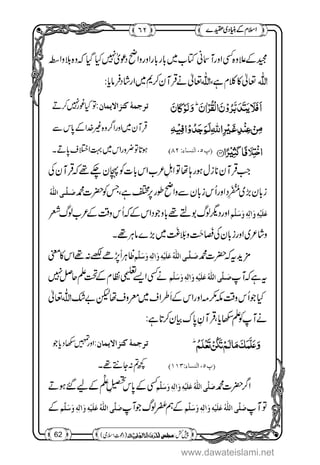 اسلام کے بنیادی عقیدے
٦٢
مجید کے علاوہ کسی اور آسمانی کتاب میں بار بار اور واضح دعویٰ نہیں کیا گیا کہ وہ بلا واسطہ
اللہ تعالیٰ کا کلام ہے، اللہ تعالیٰ نے قرآن کریم میں ارشاد فرمایا:
اَفَلَا یَتَدَبَّرُوْنَ الْقُرْاٰنَؕ-وَ لَوْ كَانَ
مِنْ عِنْدِ غَیْرِ اللّٰهِ لَوَجَدُوْا فِیْهِ
اخْتِلَافًا كَثِیْرًا
(پ٥، النساء: ٨٢)
ترجمۂ کنز الایمان: تو کیا غور نہیں کرتے
قرآن میں اور اگر وہ غیر خدا کے پاس سے
ہوتا تو ضرور اس میں بہت اختلاف پاتے۔
جب قرآن نازل ہو رہا تھا تو اہل عرب اس بات کو پہچان چکے تھے کہ قرآن کی
زبان بڑی اور اس زبان سے واضح طور پر مختلف ہے، جسے حضرت محمد صَلَّی اللّٰہُ
عَلَیْہِ وَاٰلِہٖ وَسَلَّم اور دیگر لوگ بولتے تھے باوجود اس کے کہ اُس وقت کے عرب لوگ شعر
و شاعری اور زبان کی فصاحت و بلاغت میں بڑے ماہر تھے۔
مزید یہ کہ حضرت محمد صَلَّی اللّٰہُ عَلَیْہِ وَاٰلِہٖ وَسَلَّم ظاہراً پڑھے لکھے نہ تھے، اس کا معنی
یہ ہے کہ آپ صَلَّی اللّٰہُ عَلَیْہِ وَاٰلِہٖ وَسَلَّم نے کسی ایسے تعلیمی نظام کے تحت علم حاصل نہیں
کیا جو اُس وقت مکہ مکرمہ اور اس کے اطراف میں معروف تھا، لیکن بے شک اللہ تعالیٰ
نے آپ کو علم سکھایا، قرآن پاک بیان کرتا ہے:
وَ عَلَّمَكَ مَا لَمْ تَكُنْ تَعْلَمُؕ-
(پ٥، النساء: ١١٣)
ترجمۂ کنز الایمان: اور تمہیں سکھا دیا جو
کچھ تم نہ جانتے تھے۔
اگر حضرت محمد صَلَّی اللّٰہُ عَلَیْہِ وَاٰلِہٖ وَسَلَّم کسی کے پاس تحصیل علم کے لیے گئے ہوتے
تو آپ صَلَّی اللّٰہُ عَلَیْہِ وَاٰلِہٖ وَسَلَّم کے ہم عصر لوگ جو آپ صَلَّی اللّٰہُ عَلَیْہِ وَاٰلِہٖ وَسَلَّم کے
62
www.dawateislami.net